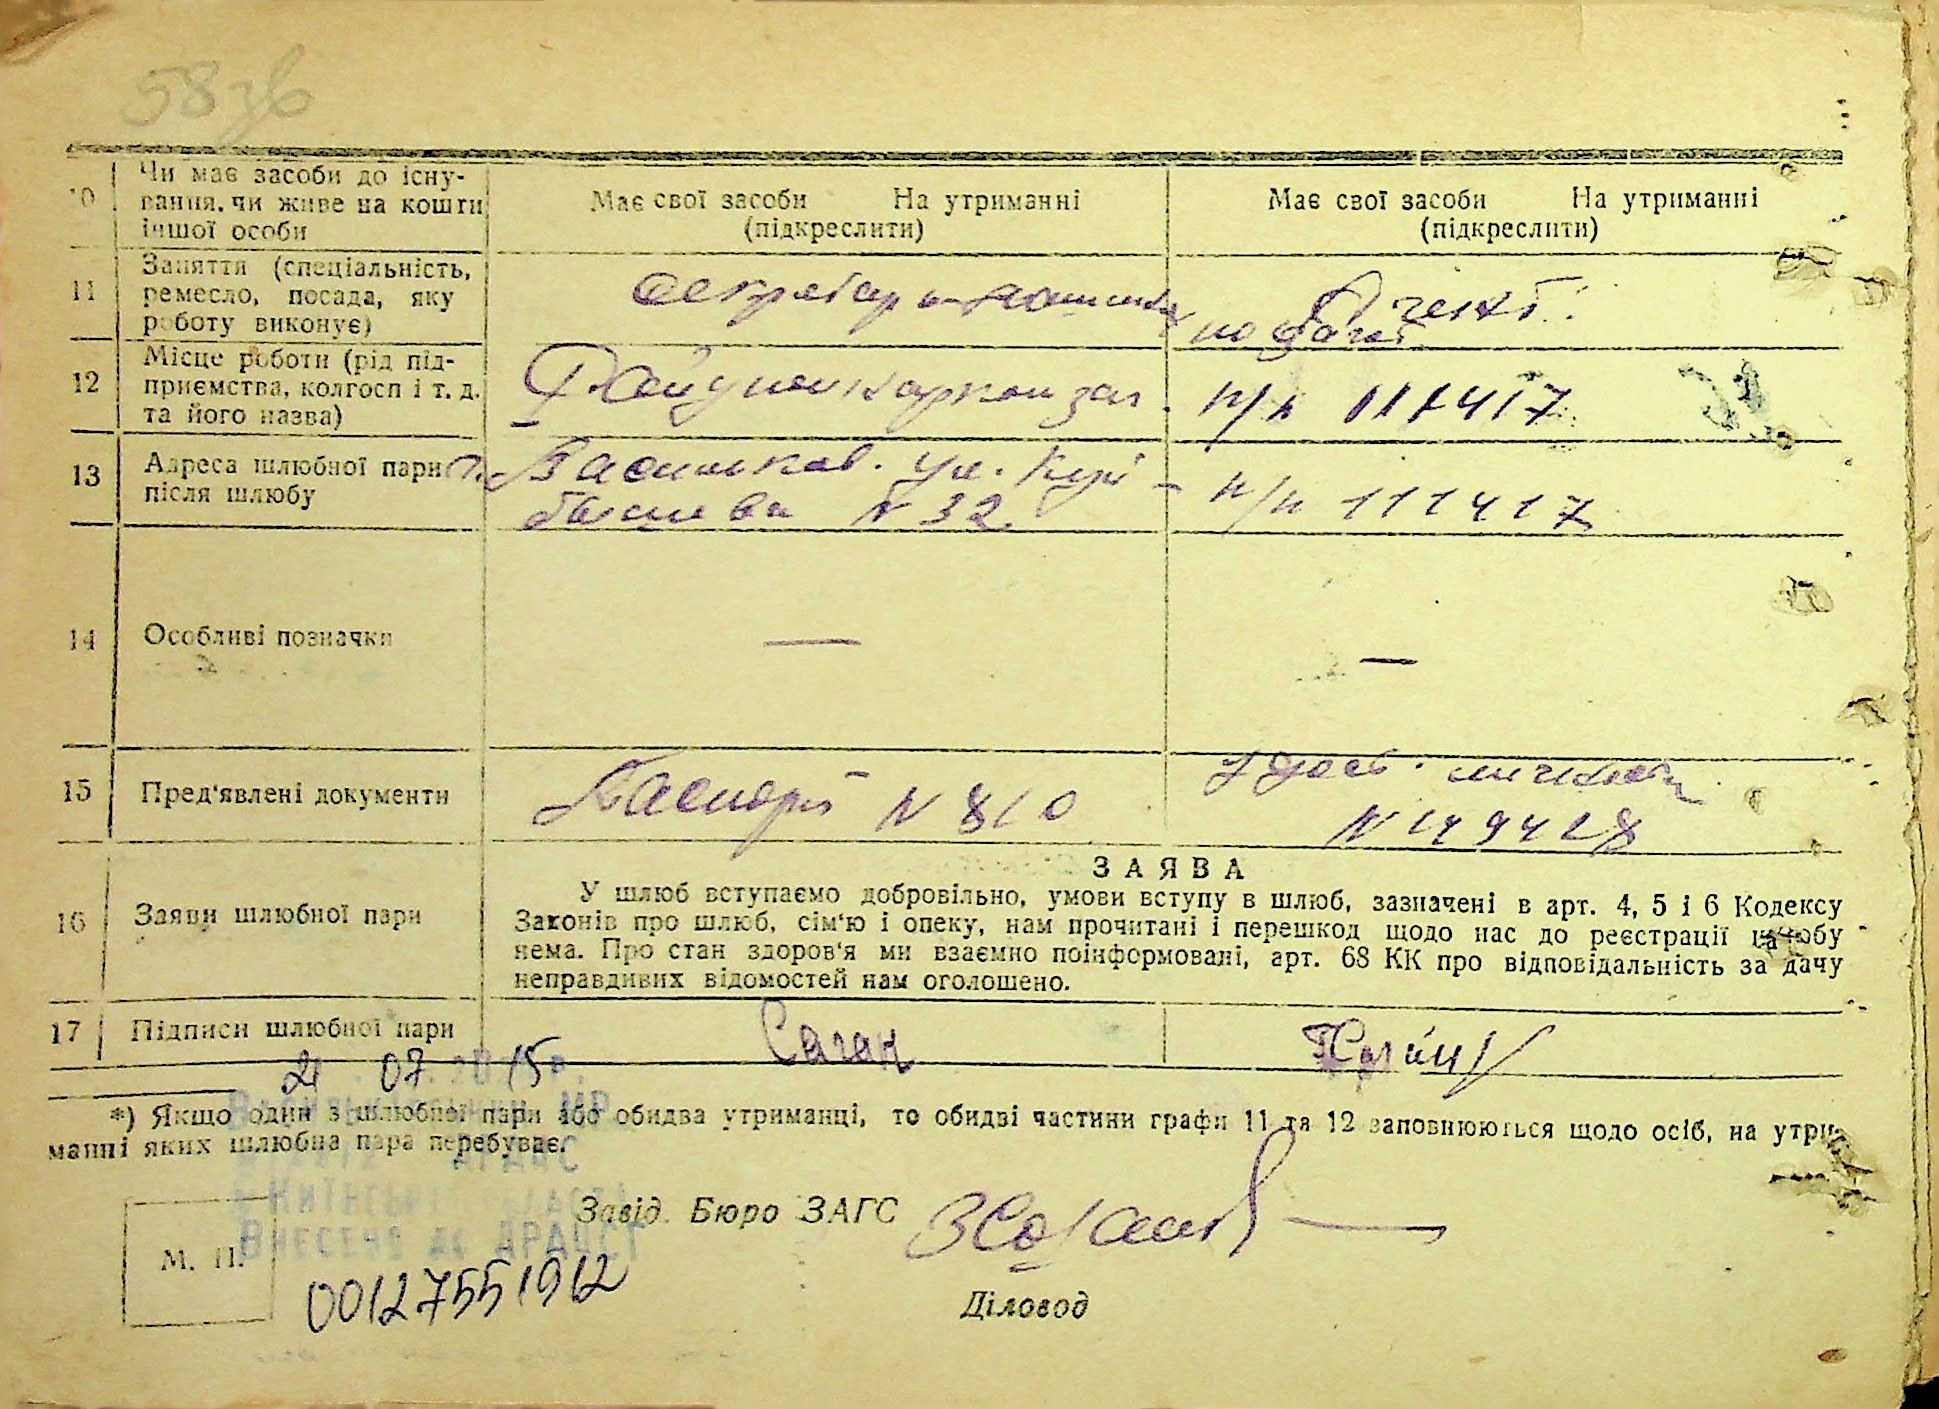 58зв
10 Чи має засоби до існу-
вання, чи живе на кошти
іншої особи
Має свої засоби На утриманні
(підкреслити)
Має свої засоби На утриманні
(підкреслити)
11 Заняття (спеціальність,
ремесло, посада, яку
роботу виконує)
Секретар
Агент
по
12 Місце роботи (рід під-
приємства, колгосп і т. д.
та його назва)
п/п 111417
13 Адреса шлюбної пари
після шлюбу
г. Васильков. ул. Куй-
бышева N 32
п/п 111417
14 Особливі позначки
—
—
15 Пред'явлені документи
Паспорт N 810
Удост. личности
N 149428
16 Заяви шлюбної пари
ЗАЯВА
У шлюб вступаємо добровільно, умови вступу в шлюб, зазначені в арт. 4, 5 і 6 Кодексу
Законів про шлюб, сім'ю і опеку, нам прочитані і перешкод щодо нас до реєстрації шлюбу
нема. Про стан здоров'я ми взаємно поінформовані, арт. 68 КК про відповідальність за дачу
неправдивих відомостей нам оголошено.
17 Підписи шлюбної пари
Саган
21 07 2015р.
*) Якщо один з шлюбної пари або обидва утриманці, то обидві частини графи 11 та 12 заповнюються щодо осіб, на утри-
манні яких шлюбна пара перебуває.
Внесено до ДРАЦСГ
Завід. Бюро ЗАГС
М. П.
00127551912
Діловод